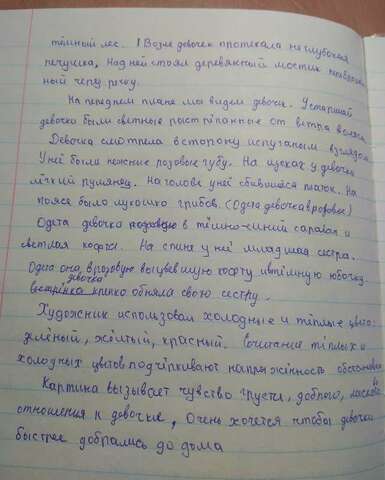 тёмный лес. Возле девочек протекала неглубокая
речушка, Над ней стоял деревянный мостик
ный через речку.
На переднем плане мы видем девочк. Устаршей
девочки были светлые ростріпанные от ветра волосы
Девочка смотрела в сторону испуганым взглядом
Уней были нежние розовые губу. На щеках у девочки
лёгкий румянец. На голове уней сбившийся платок. На
поясе было лукошко грибов. (Одета девочка в розовые)
Одета девочка в тёмно-синий сарафан и
светлая кофта. На спине у ней младшая сестра.
Одета она, в розовую выцвевшую кофту и втёмную юбочку.
девочка
крепко обняла свою сестру.
Художник использовал холодные и тёплые цвета:
зелёный, жёлтый, красный. Сочитание тёплых и
холодных цветов подчёркивают напряжённость обстановки
Картина вызывает чувство грусти, доброго,
отношения к девочке, Очень хочется чтобы девочки
быстрее добрались до дома